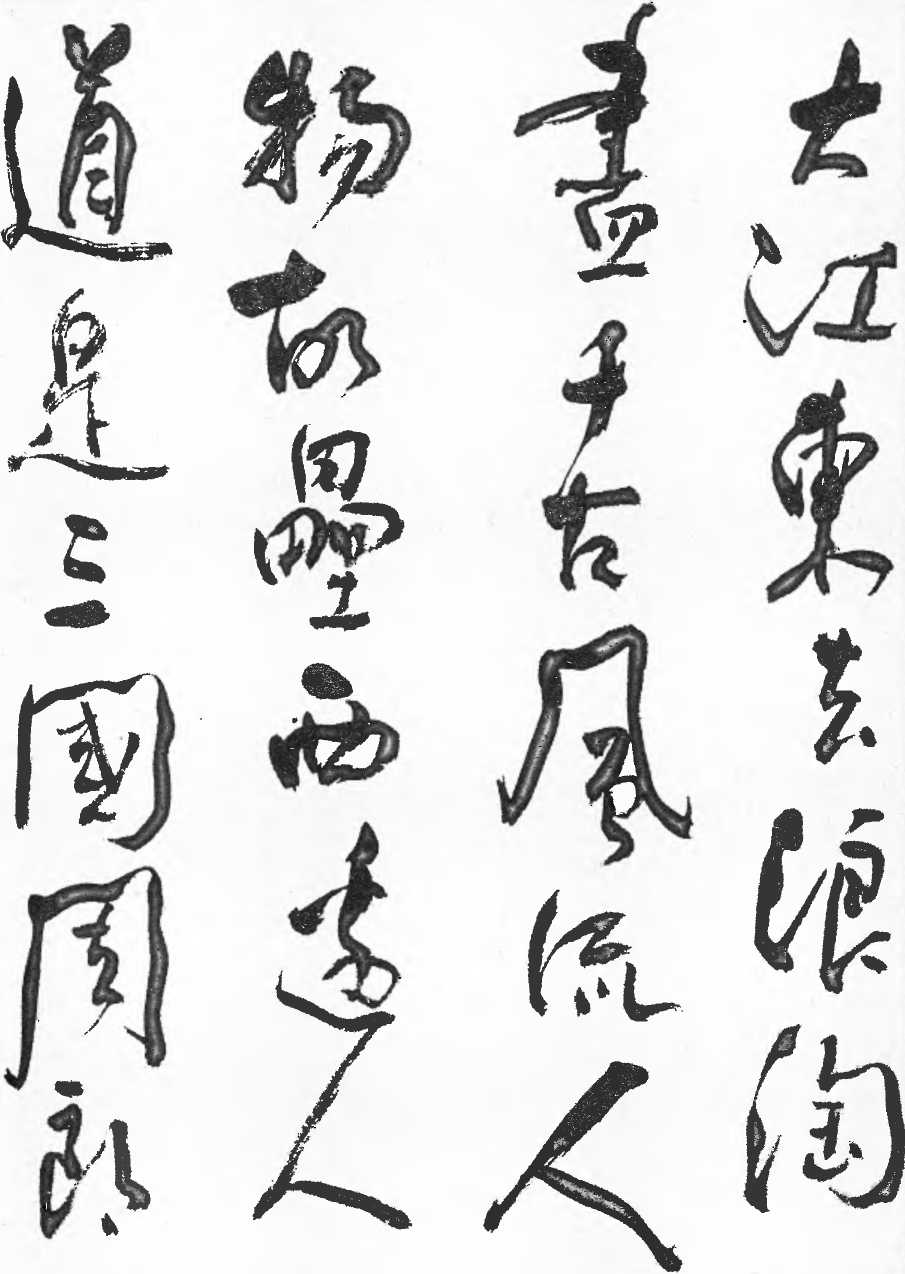 大江東去浪淘
盡千古風流人
物故壘西邊人
道是三國周郎